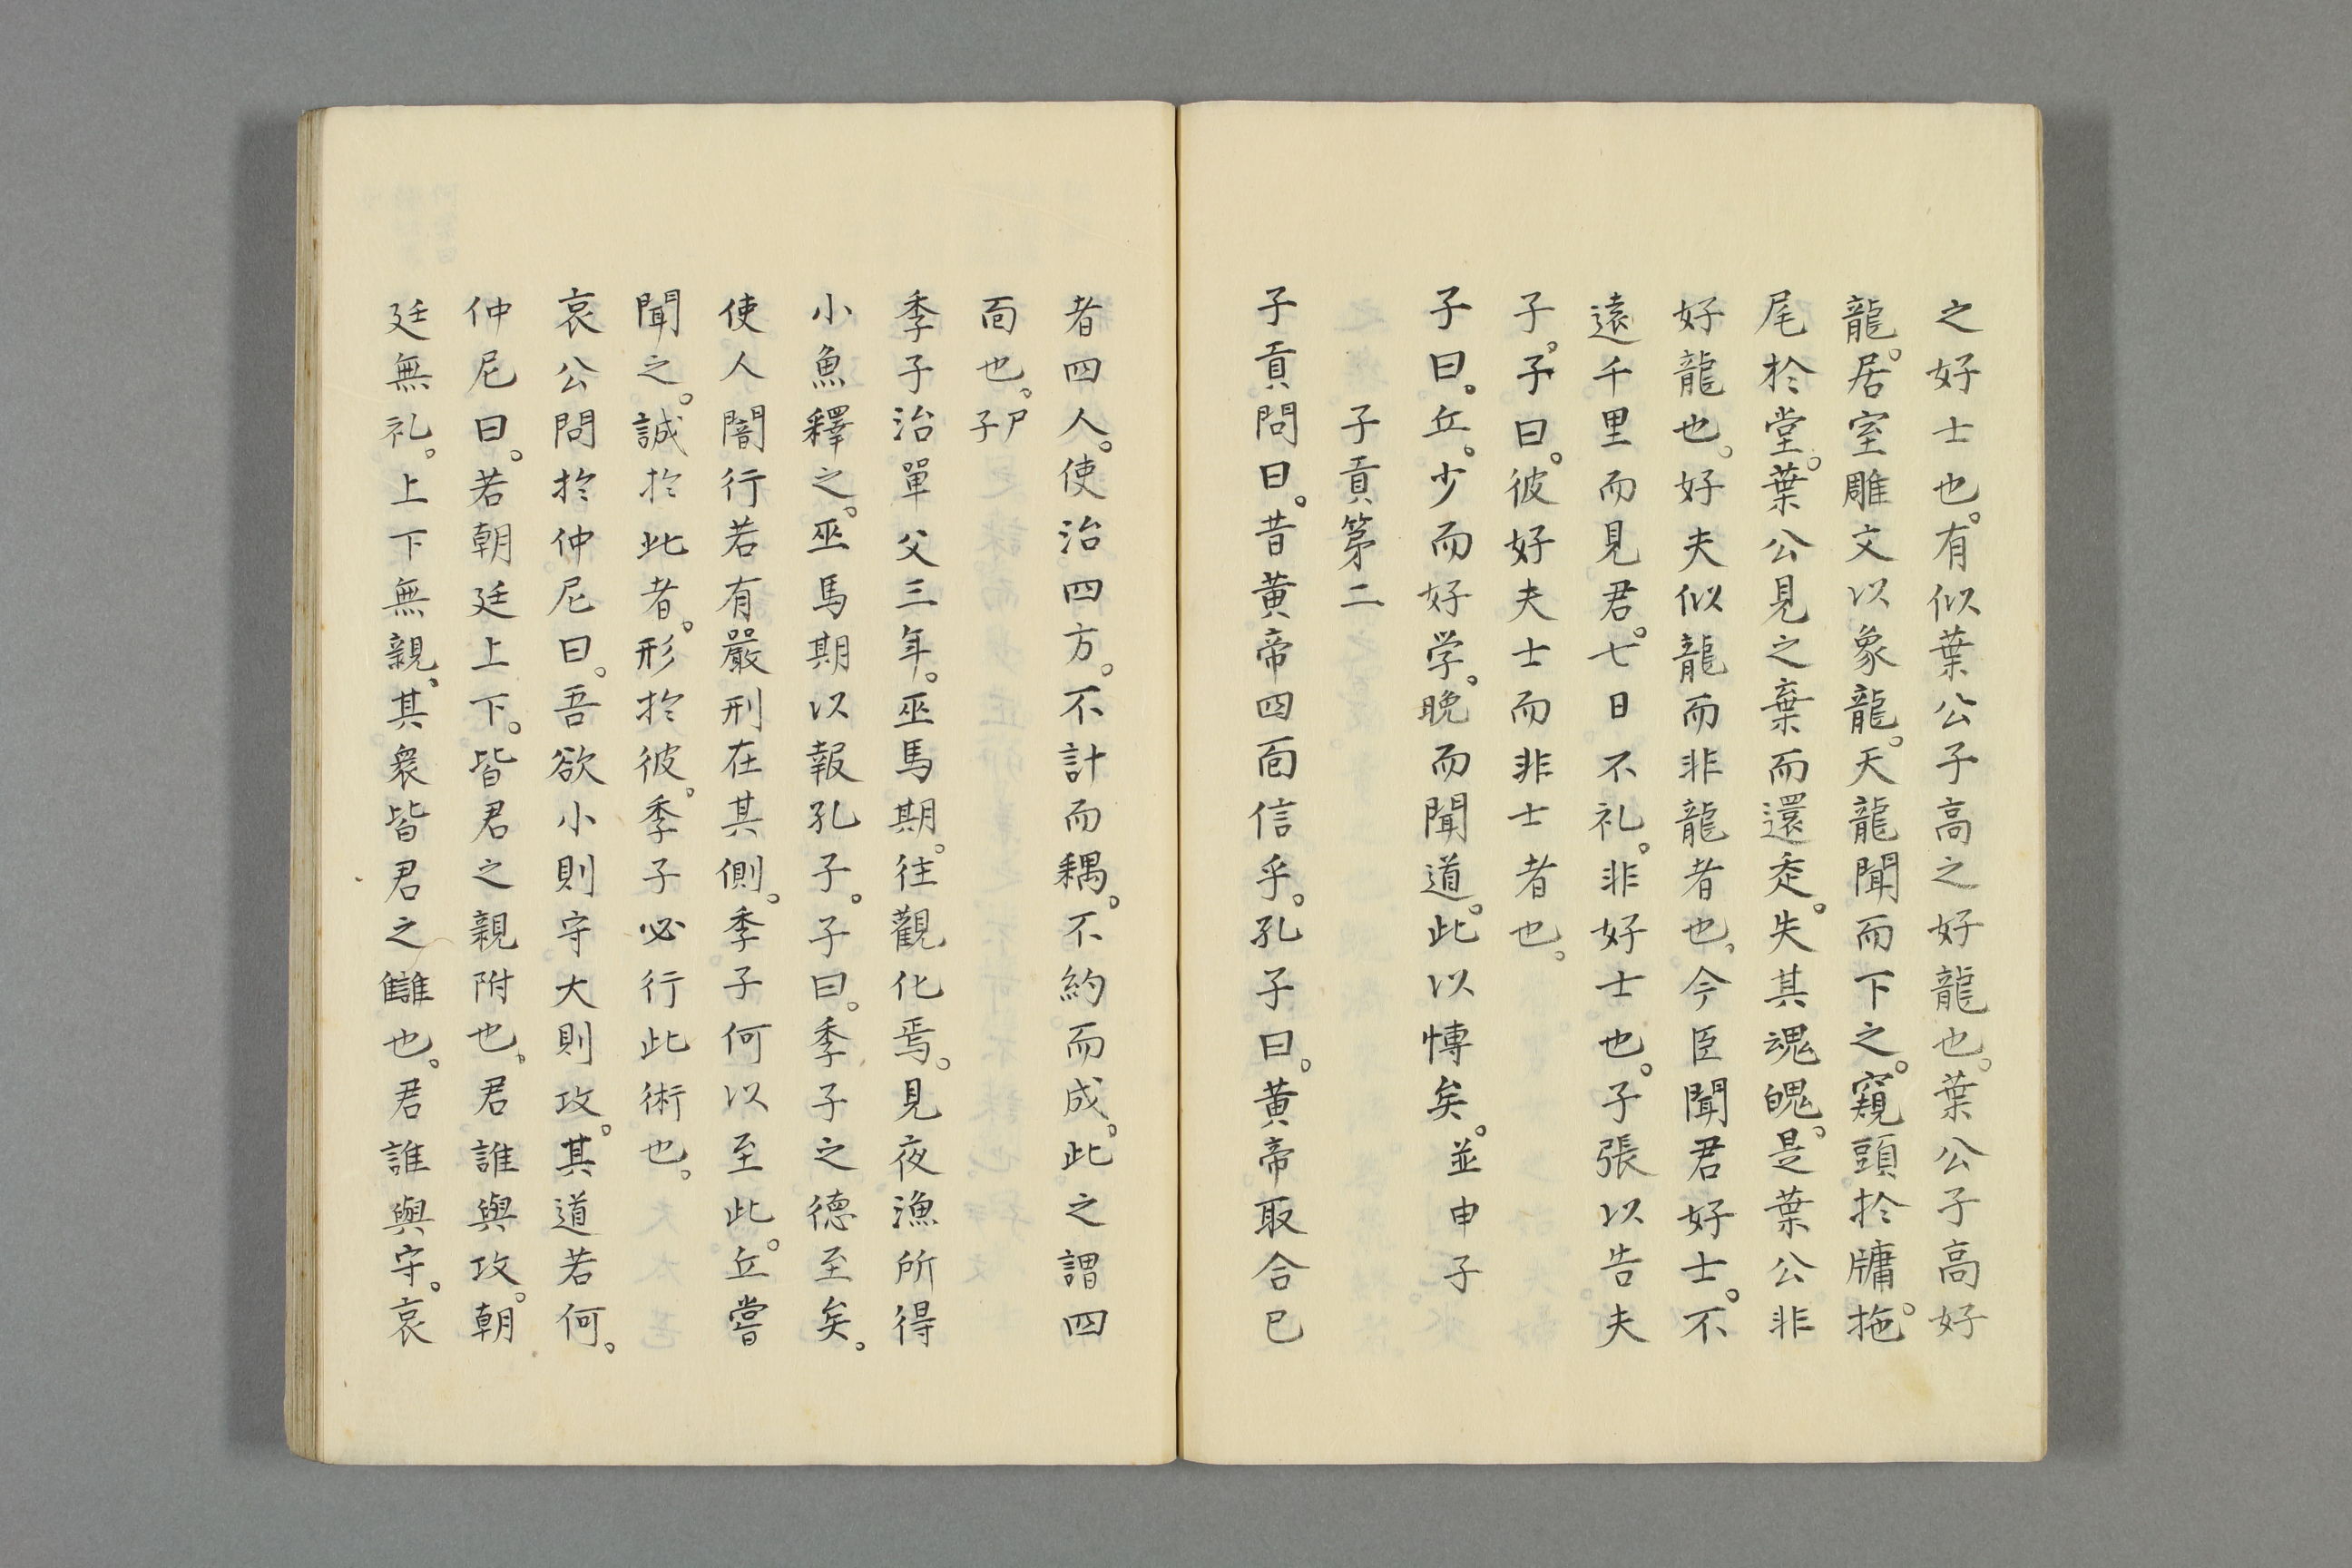 之好士也。有似葉公子高之好龍也。葉公子高好
龍。居室雕文以象龍。天龍聞而下之。窺頭於牗。拖
尾於堂。葉公見之棄而還走。失其魂魄。是葉公非
好龍也。好夫似龍而非龍者也。今臣聞君好士。不
遠千里而見君。七日不礼。非好士也。子張以告夫
子。子曰。彼好夫士而非士者也。
子曰。丘。少而好学。晚而聞道。此以慱矣。並申子
子貢第二
子貢問曰。昔黄帝四面信乎。孔子曰。黄帝取合已
者四人。使治四方。不計而耦。不約而成。此之謂四
面也。尸子
季子治單父三年。巫馬期。往觀化焉。見夜漁所得
小魚釋之。巫馬期以報孔子。子曰。季子之德至矣。
使人闇行若有嚴刑在其側。季子何以至此。丘嘗
聞之。誠於此者。形於彼。季子必行此術也。
哀公問於仲尼曰。吾欲小則守大則攻。其道若何。
仲尼曰。若朝廷上下。皆君之親附也。君誰與攻。朝
廷無礼。上下無親。其衆皆君之讎也。君誰與守。哀